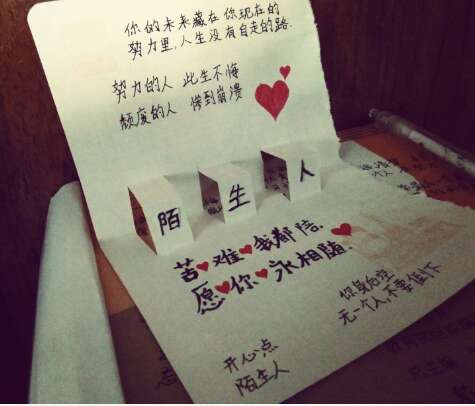 你的未来藏在你现在的
努力里,人生没有白走的路.
努力的人 此生不悔
颓废的人 惨到崩溃
陌 生 人
苦 难 我都陪.
愿 你 永相随.
你身后空
无一个人,不要倒下
开心点
陌生人